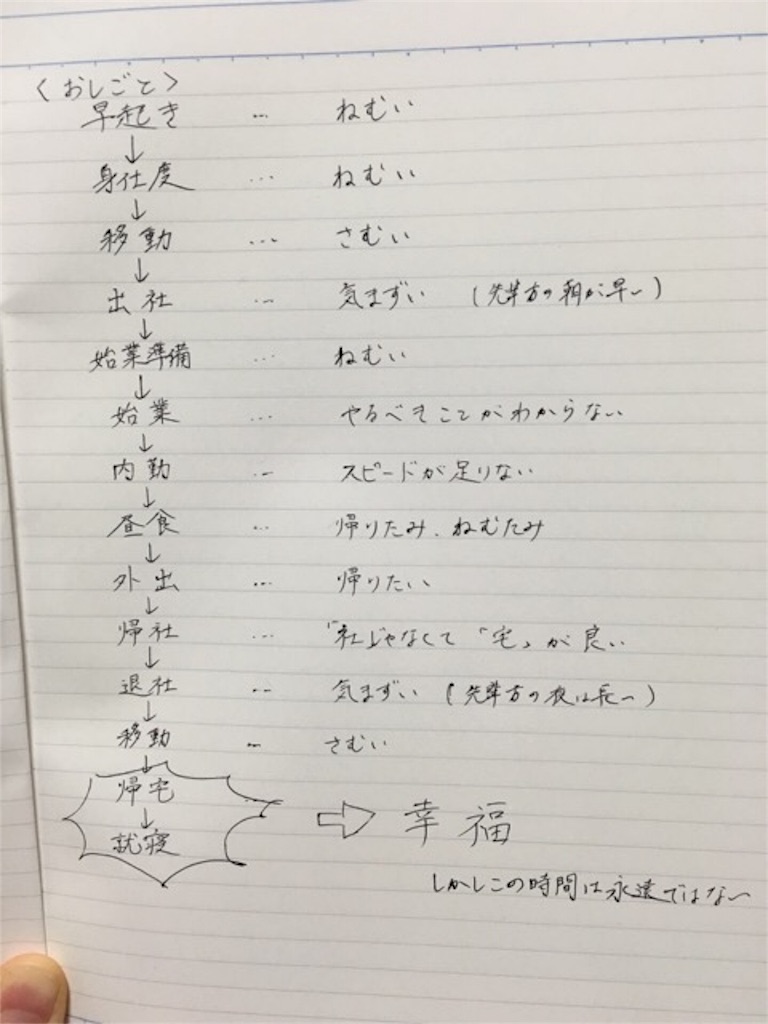 〈おしごと〉
早起き … ねむい
↓
身仕度 … ねむい
↓
移動 … さむい
↓
出社 … 気まずい （先輩方の朝が早い）
↓
始業準備 … ねむい
↓
始業 … やるべきことがわからない
↓
内勤 … スピードが足りない
↓
昼食 … 帰りたみ、ねむたみ
↓
外出 … 帰りたい
↓
帰社 … 「社」じゃなくて「宅」が良い
↓
退社 … 気まずい （先輩方の夜は長い）
↓
移動 … さむい
↓
帰宅
↓
就寝 ⇨ 幸福
しかしこの時間は永遠ではない